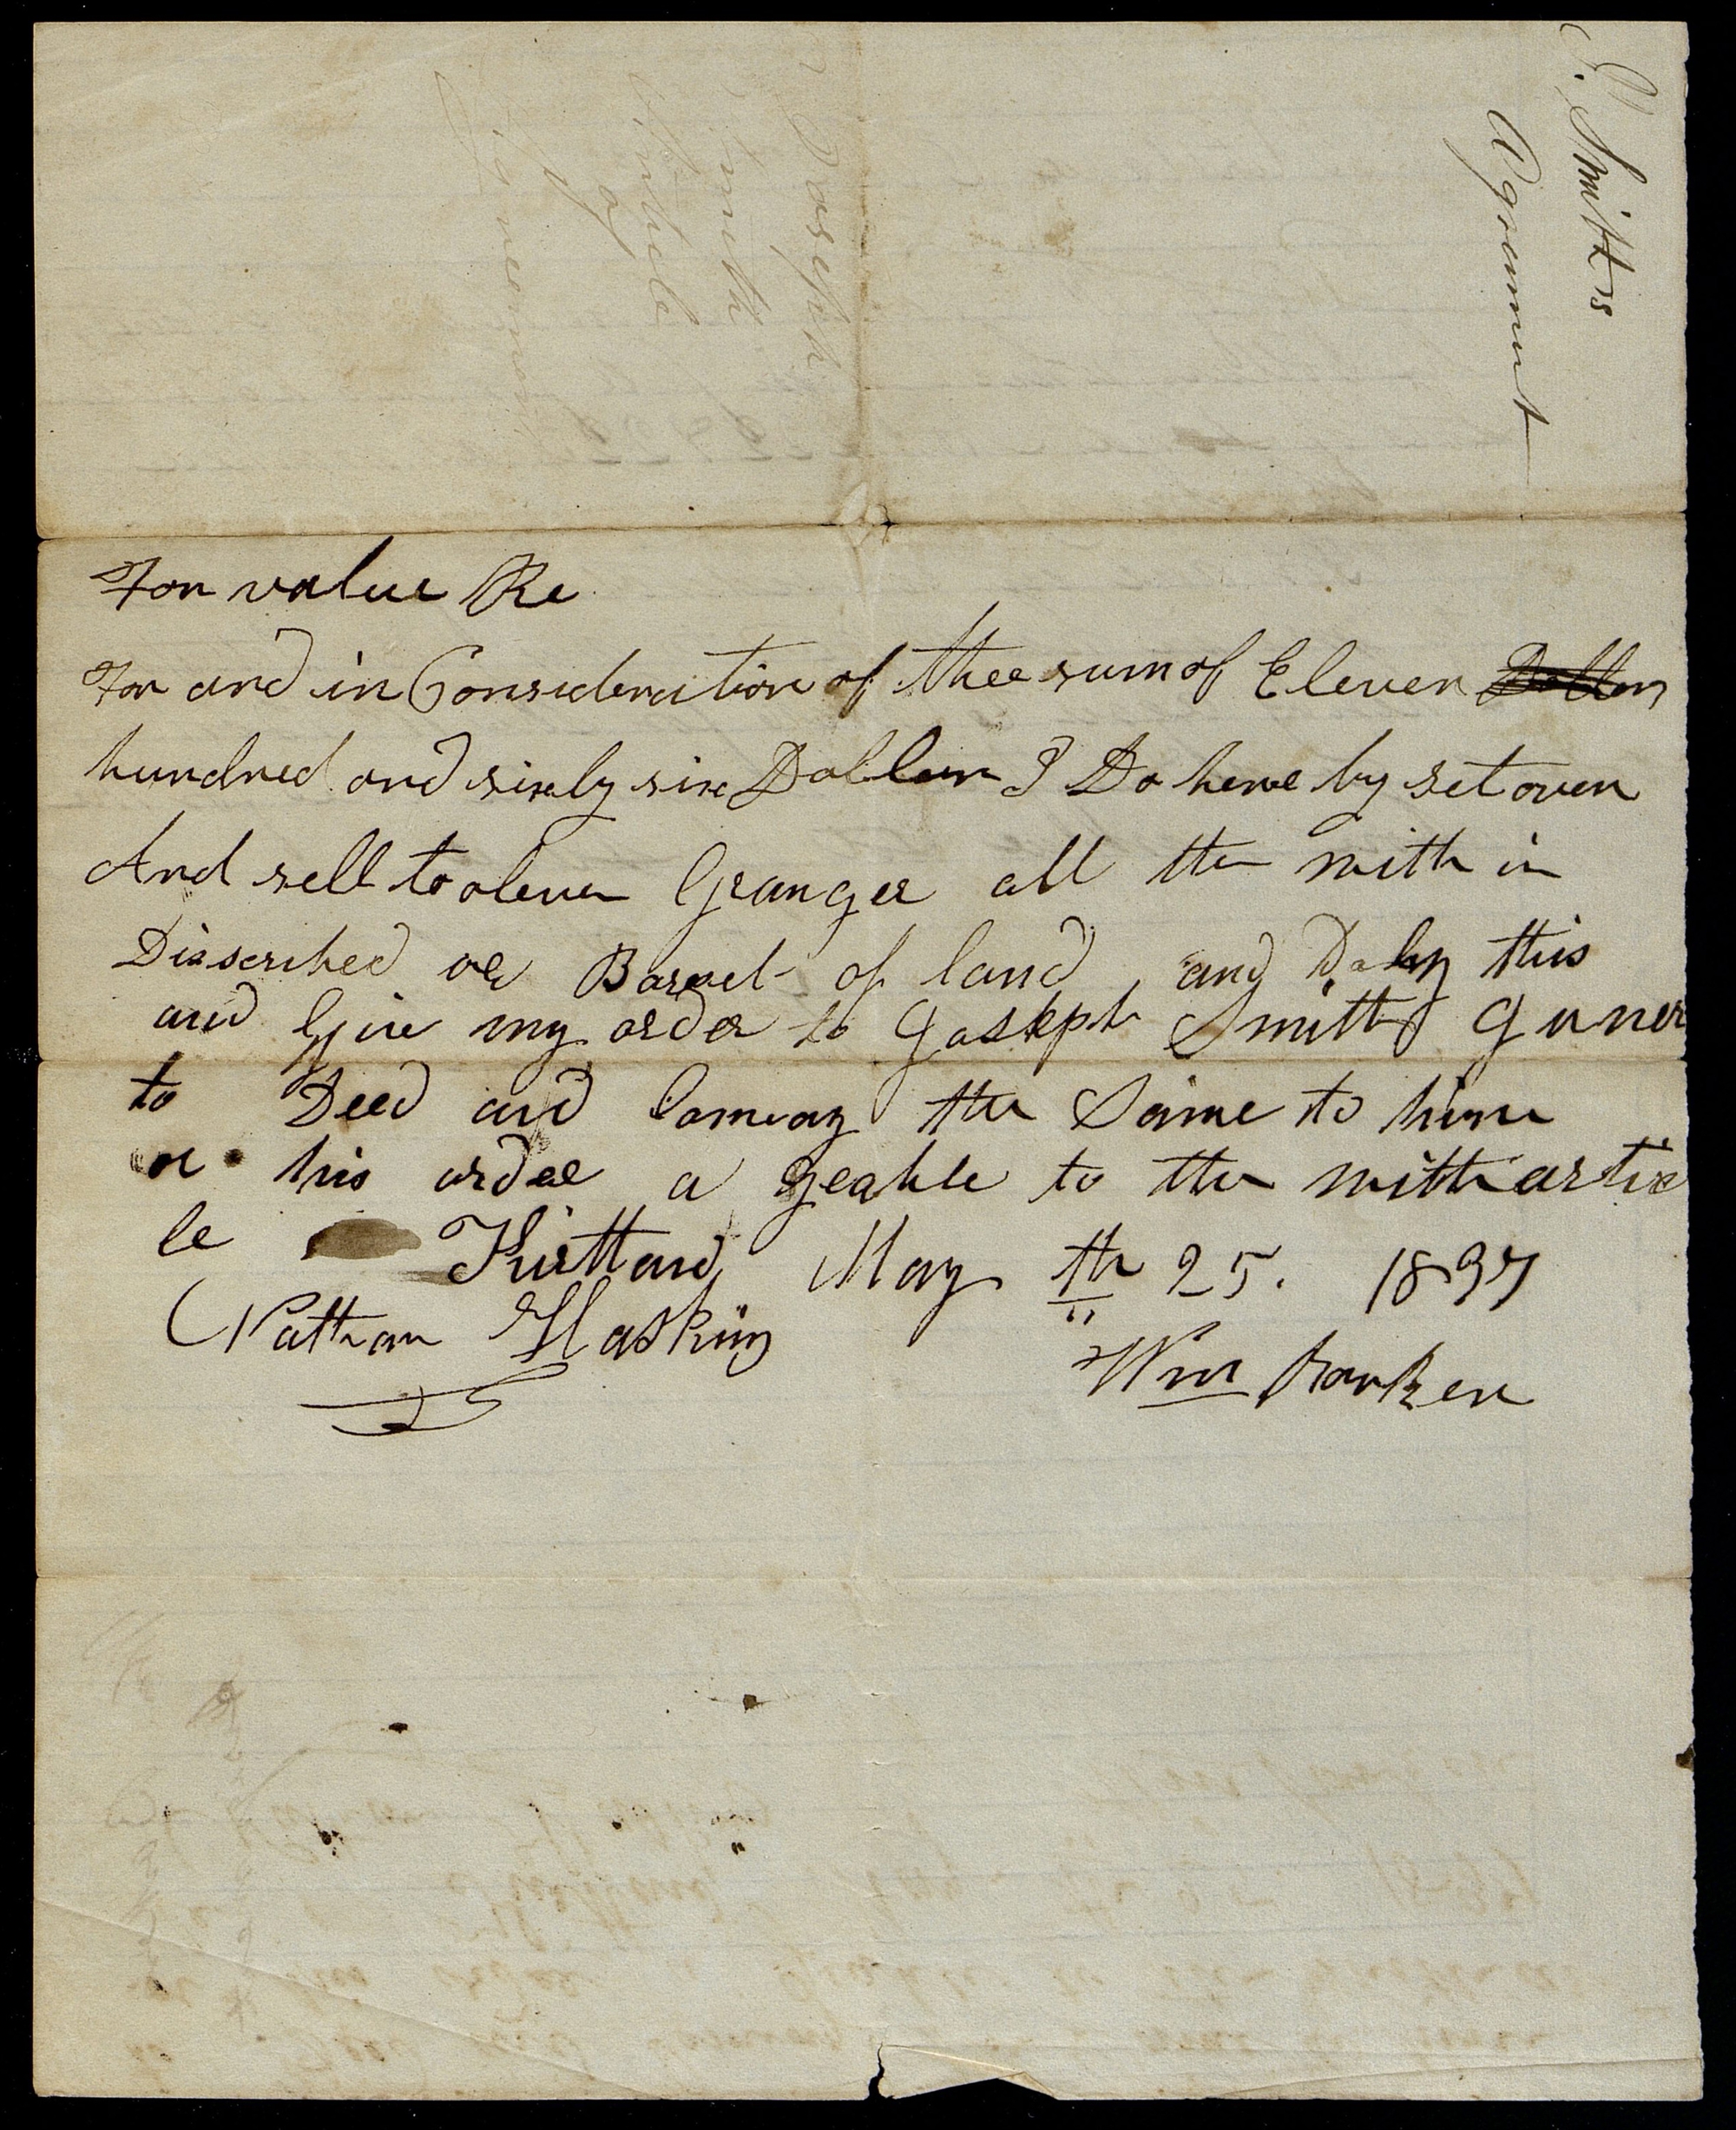 J. Smiths
Agreement
Joseph
Smith
Article
of
For value Re
For and in Consideration of thee sum of Eleven Dollers
hundred and sixty six Dollars I Do here by set over
And sell to olever Granger all the with in
Disscribed or Barcel of land and Do by this
and Give my order to Joskph Smith Juner
to Deed and Convay the Same to him
or his order a greable to the with artic
le Kirtland May th 25. 1837
Nathan Haskins
Wm Barker